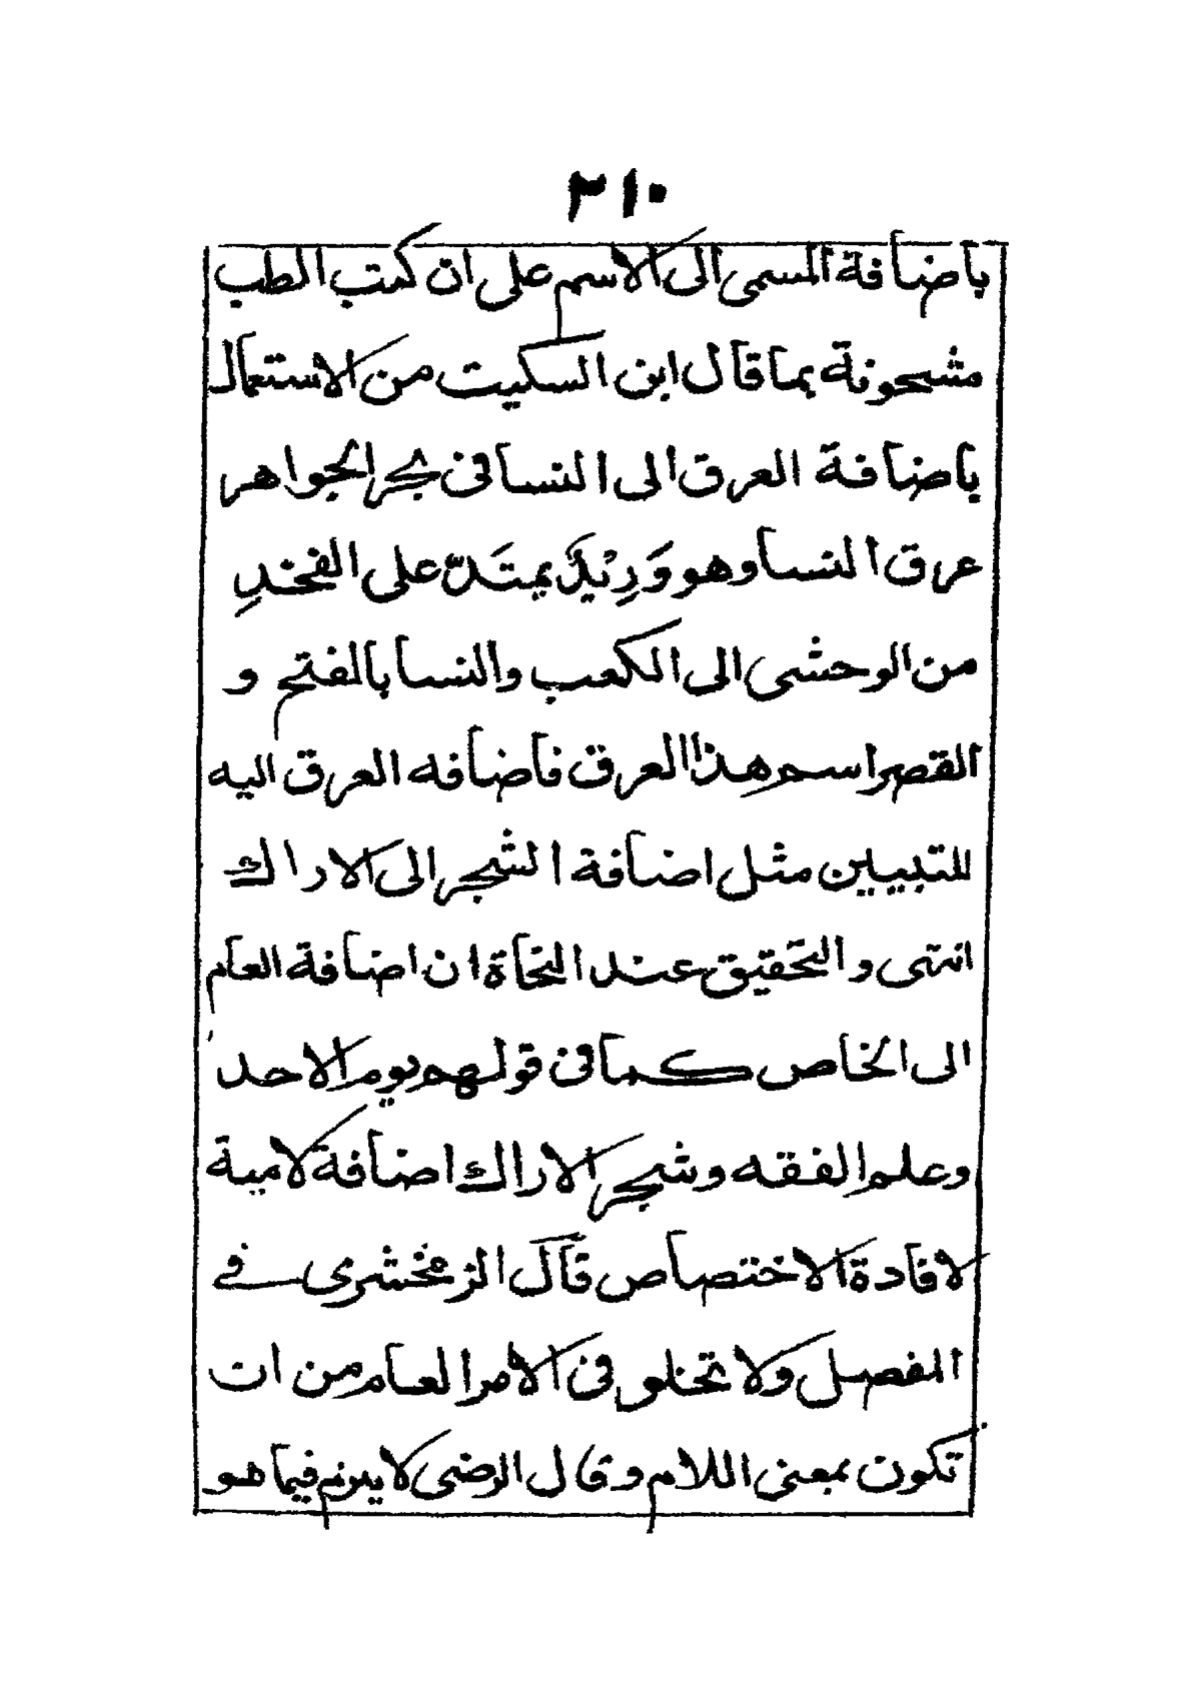 ٣١٠
باضافة المسمى الى الاسم على ان كتب الطب
مشحونة بما قال ابن السكيت من الاستعمال
باضافة العرق الى النسا فى بحر الجواهر
عرق النسا وهو وَرِيْدٌ يمتَدّ على الفخذِ
من الوحشى الى الكعب والنسا بالفتح و
القصر اسم هذا العرق فاضافه العرق اليه
للتبيين مثل اضافة الشجر الى الاراك
انتهى والتحقيق عند النحاة ان اضافة العام
الى الخاص كما فى قولهم يوم الاحد
وعلم الفقه وشجر الاراك اضافة لامية
لافادة الاختصاص قال الزمخشرى فے
المفصل ولا تخلو فى الامر العام من ان
تكون بمعنى اللام وقال الرضى لا يلزم فيما هو